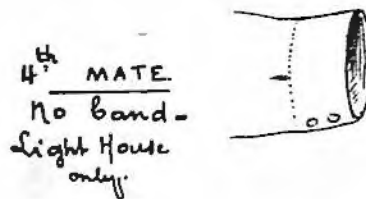 4th MATE.
No band -
Light House
only.